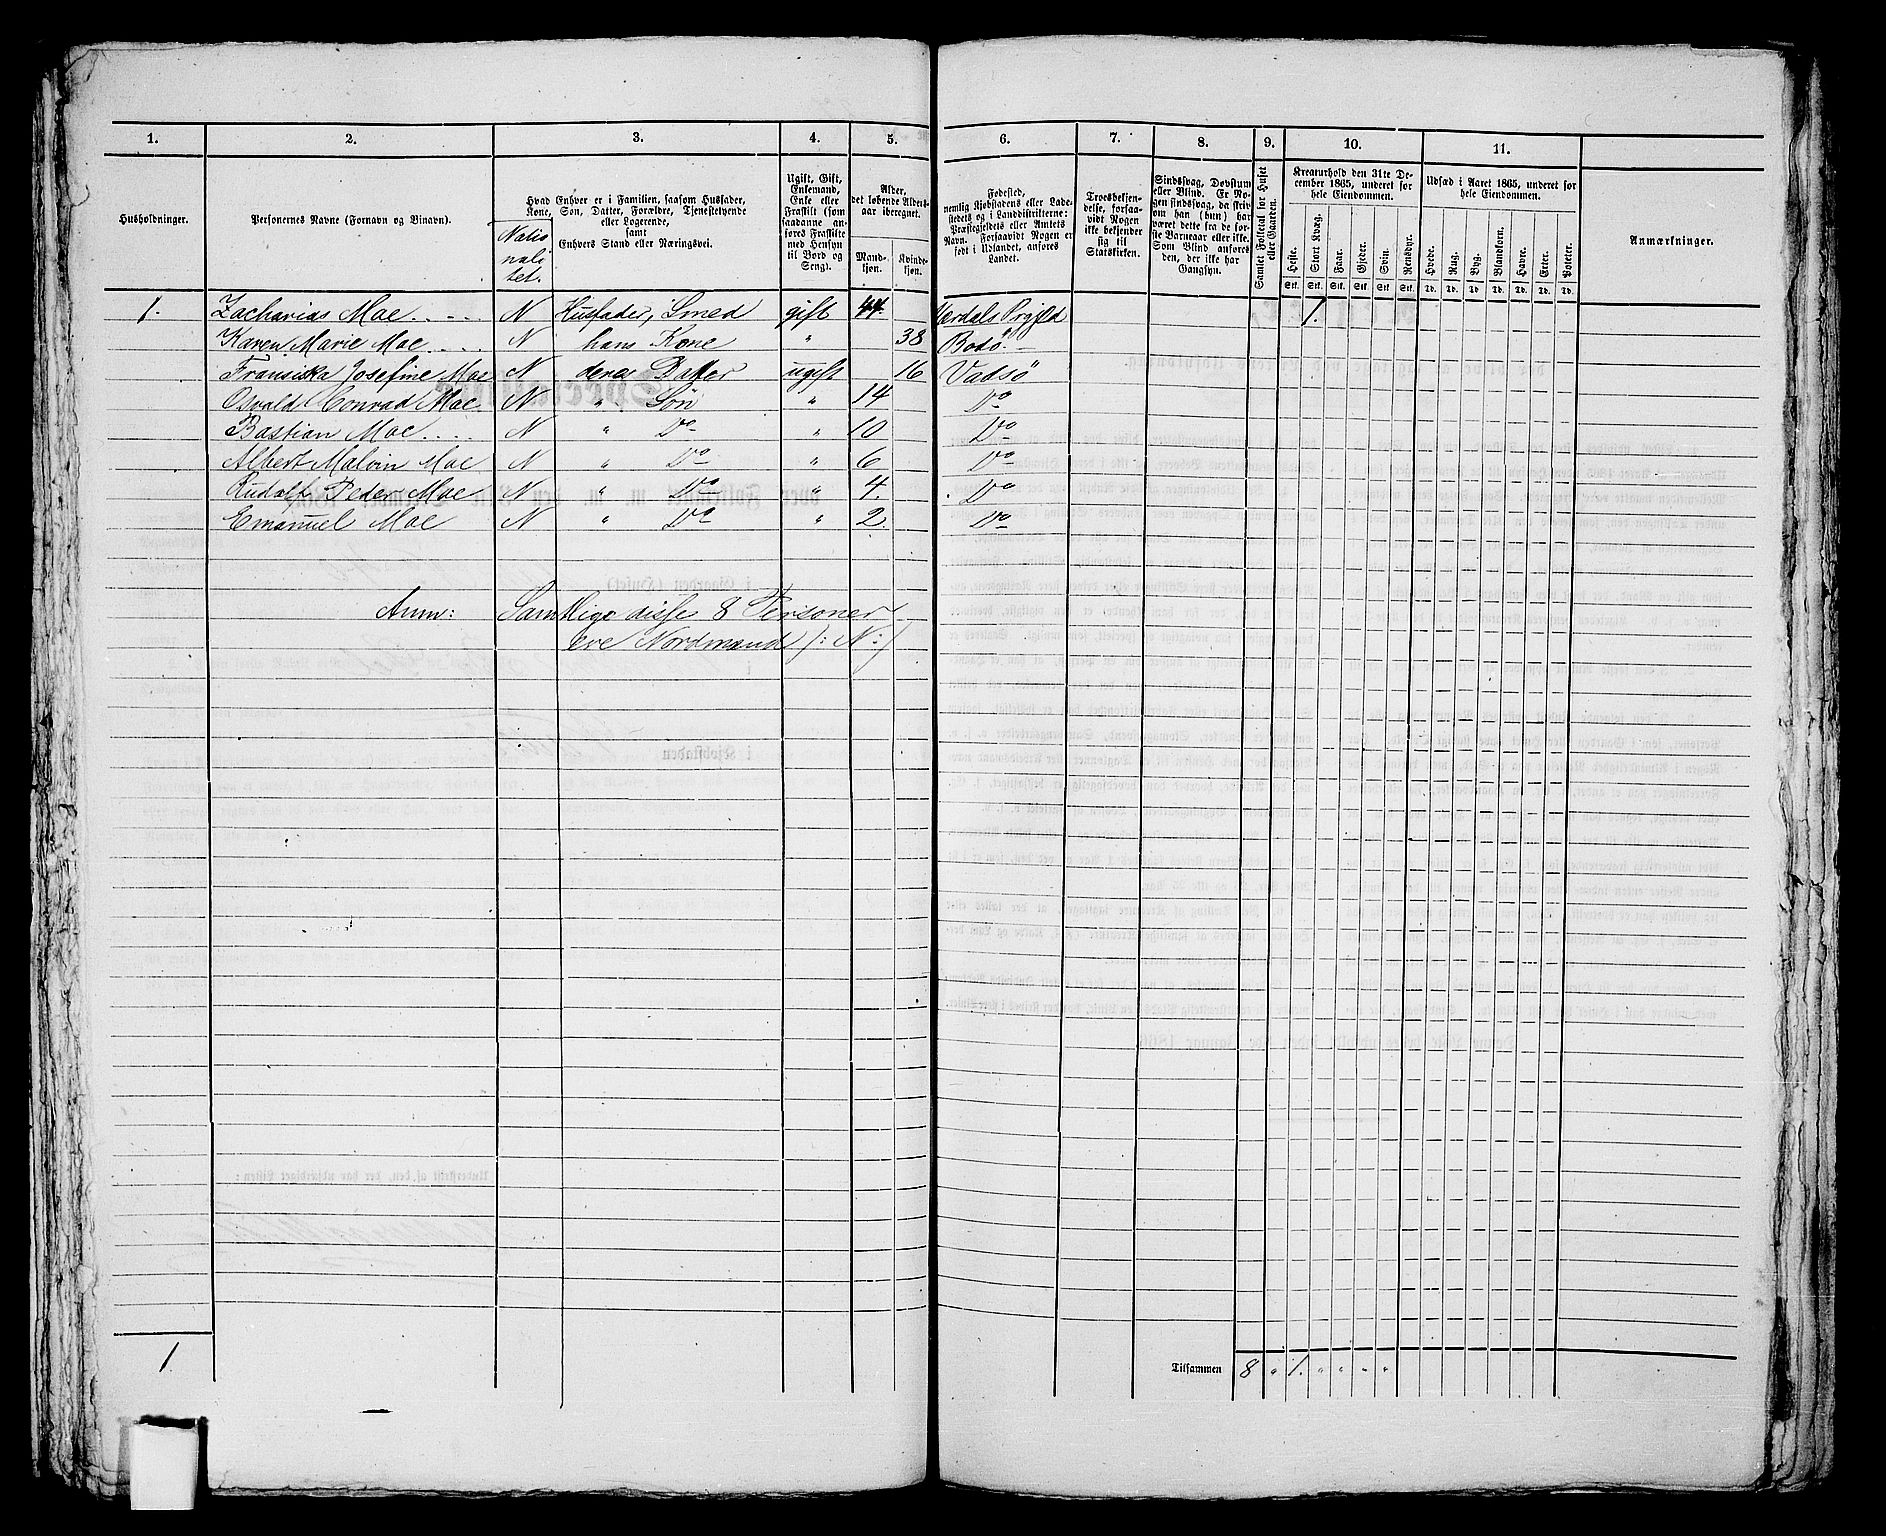 1. 2. 3. 4. 5. 6. 7. 8. 9. 10. 11.
Husholdninger.
Personernes Navne (Fornavn og Binavn).
Hvad Enhver er i Familien, saasom Husfader,
Kone, Søn, Datter, Forældre, Tjenestetyende
eller Logerende,
samt
Enhvers Stand eller Næringsvei.
Natio
nali
tet.
Ugift, Gift,
Enkemand,
Enke eller
Fraskilt (som
saadanne an-
føres Fraskilte
med Hensyn
til Bord og
Seng).
Alder,
det løbende Alders-
aar iberegnet.
Mand-
kjøn.
Kvinde-
kjøn.
Fødested,
nemlig Kjøbstadens eller Lade-
stedets og i Landdistrikterne:
Præstegjeldets eller Amtets
Navn. Forsaavidt Nogen er
født i Udlandet, anføres
Landet.
Troesbekjen-
delse, forsaa-
vidt Nogen
ikke bekjender
sig til
Statskirken.
Sindssvag, Døvstum
eller Blind. Er No-
gen sindssvag, da skriv
om han (hun) har
været dette fra de før-
ste Barneaar eller ikke.
Som Blind anføres
den, der ikke har
Gangsyn.
Samlet Folketal for Huset
eller Gaarden.
Kreaturhold den 31te De-
cember 1865, underet for
hele Eiendommen.
Heste. Stort Kvæg. Faar. Gjeder. Svin. Rensdyr.
Stk. Stk. Stk. Stk. Stk. Stk.
Udsæd i Aaret 1865, underet for
hele Eiendommen.
Hvede. Rug. Byg. Blandkorn. Havre. Erter. Poteter.
Td. Td. Td. Td. Td. Td. Td.
Anmærkninger.
1. Zacharias Moe N Husfader, Smed gift 44 Værdals Prgjeld 1.
Karen Marie Moe N hans Kone " 38 Bodø
Fransiska Josefine Moe N deres Datter ugift 16 Vadsø
Osvald Conrad Moe N " Søn " 14 Do
Bastian Moe N " Do " 10 Do
Albert Malvin Moe N " Do " 6 Do
Rudolf Peder Moe N " Do " 4. Do
Emanuel Moe N " Do " 2. Do
Anm: Samtlige disse 8 Personer
ere Nordmænd /: N:/
1. Tilsammen 8 " 1. " " " "